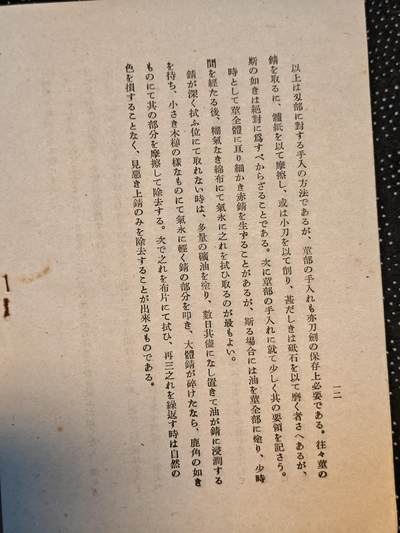 一二
以上は刃部に對する手入の方法であるが、莖部の手入れも亦刀劍の保存上必要である。往々莖の
錆を取るに、鑢紙を以て摩擦し、或は小刀を以て削り、甚だしきは砥石を以て磨く者さへあるが、
斯の如きは絕對に爲すべからざることである。次に莖部の手入れに就て少しく其の要領を記さう。
時として莖全體に亙り細かき赤錆を生ずることがあるが、斯る場合には油を莖全部に塗り、少時
間を經たる後、糊氣なき綿布にて氣永に之れを拭ひ取るのが最もよい。
錆が深く拭ふ位にて取れない時は、多量の礦油を塗り、數日其儘になし置きて油が錆に浸潤する
を待ち、小さき木槌の樣なものにて氣永に輕く錆の部分を叩き、大體錆が碎けたなら、鹿角の如き
ものにて其の部分を摩擦して除去する。次で之れを布片にて拭ひ、再三之れを繰返す時は自然の
色を損することなく、見惡き上錆のみを除去することが出來るものである。